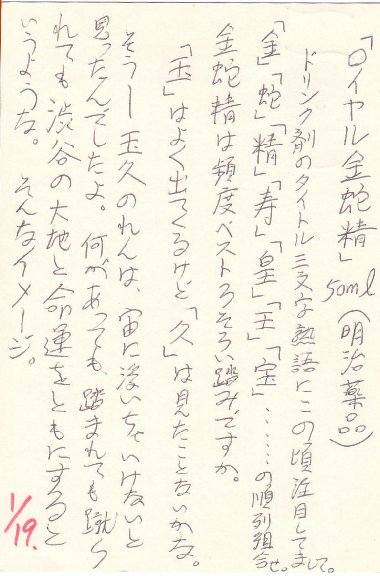 「ロイヤル金蛇精」50ml(明治薬品)
ドリンク剤のタイトル三文字熟語にこの頃注目してまして。
「金」「蛇」「精」「寿」「皇」「王」「宝」……の順列組合せ。
金蛇精は頻度ベスト3そろい踏みですか。
「玉」はよく出てくるけど「久」は見たことないかな。
そうー玉久のれんは、宙に浮いちゃいけないと
思ったんでしたよ。何があっても、踏まれても蹴ら
れても渋谷の大地と命運をともにすると
いうような。そんなイメージ。
1/19.